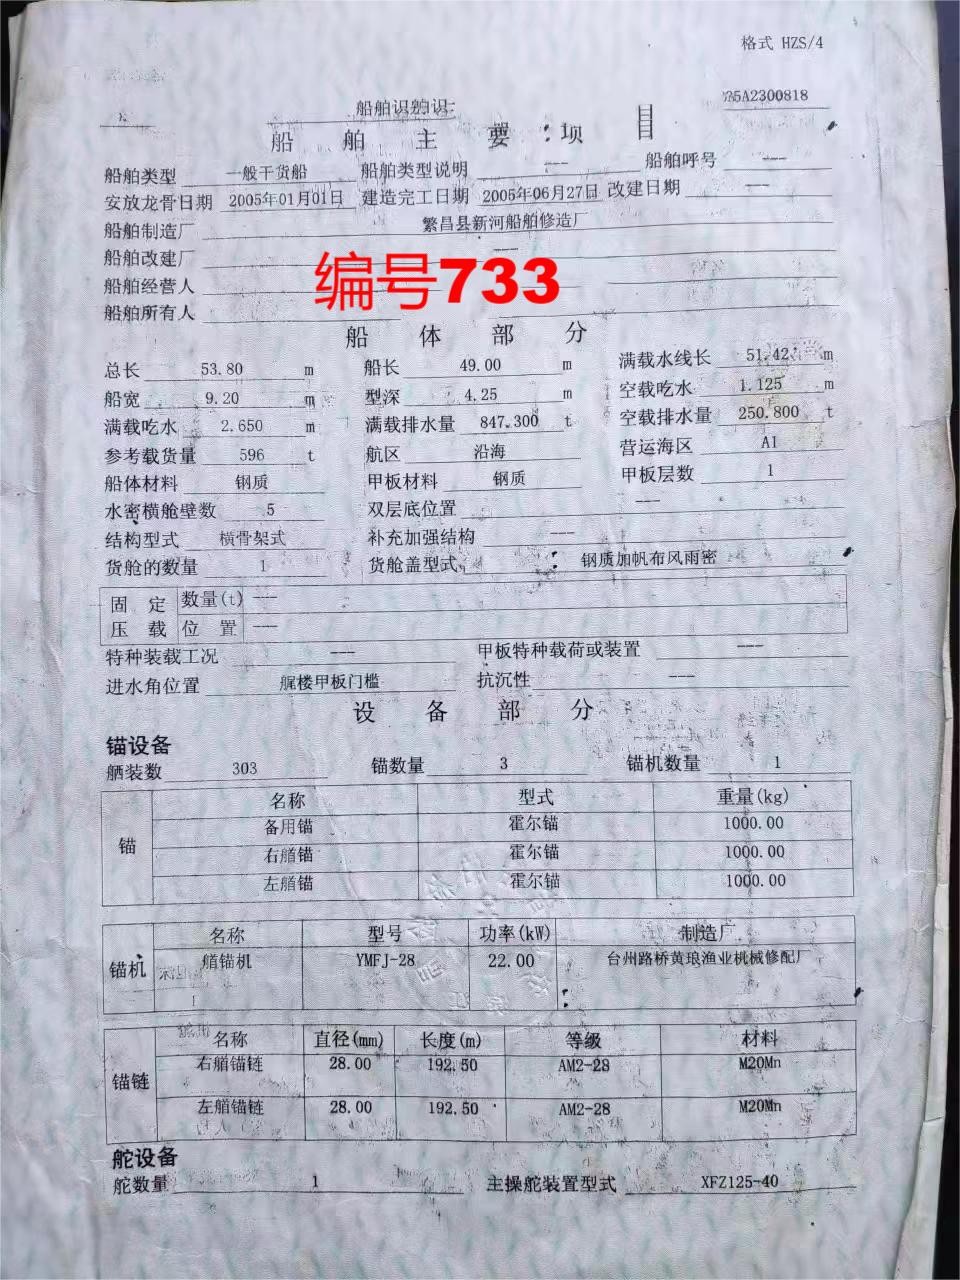 格式 HZS/4
船舶识别 5A2300818
船舶主要项目
船舶类型 一般干货船 船舶类型说明 --- 船舶呼号 ---
安放龙骨日期 2005年01月01日 建造完工日期 2005年06月27日 改建日期 ---
船舶制造厂 繁昌县新河船舶修造厂
船舶改建厂 ---
船舶经营人
编号733
船舶所有人
船体部分
总长 53.80 m 船长 49.00 m 满载水线长 51.42 m
船宽 9.20 m 型深 4.25 m 空载吃水 1.125 m
满载吃水 2.650 m 满载排水量 847.300 t 空载排水量 250.800 t
参考载货量 596 t 航区 沿海 营运海区 A1
船体材料 钢质 甲板材料 钢质 甲板层数 1
水密横舱壁数 5 双层底位置 ---
结构型式 横骨架式 补充加强结构 ---
货舱的数量 1 货舱盖型式 钢质加帆布风雨密
固定压载 数量(t) ---
位置 ---
特种装载工况 --- 甲板特种载荷或装置 ---
进水角位置 艉楼甲板门槛 抗沉性 ---
设备部分
锚设备
舾装数 303 锚数量 3 锚机数量 1
锚 名称 型式 重量(kg)
备用锚 霍尔锚 1000.00
右艏锚 霍尔锚 1000.00
左艏锚 霍尔锚 1000.00
锚机 名称 型号 功率(kW) 制造厂
艏锚机 YMFJ-28 22.00 台州路桥黄琅渔业机械修配厂
锚链 名称 直径(mm) 长度(m) 等级 材料
右艏锚链 28.00 192.50 AM2-28 M20Mn
左艏锚链 28.00 192.50 AM2-28 M20Mn
舵设备
舵数量 1 主操舵装置型式 XFZ125-40